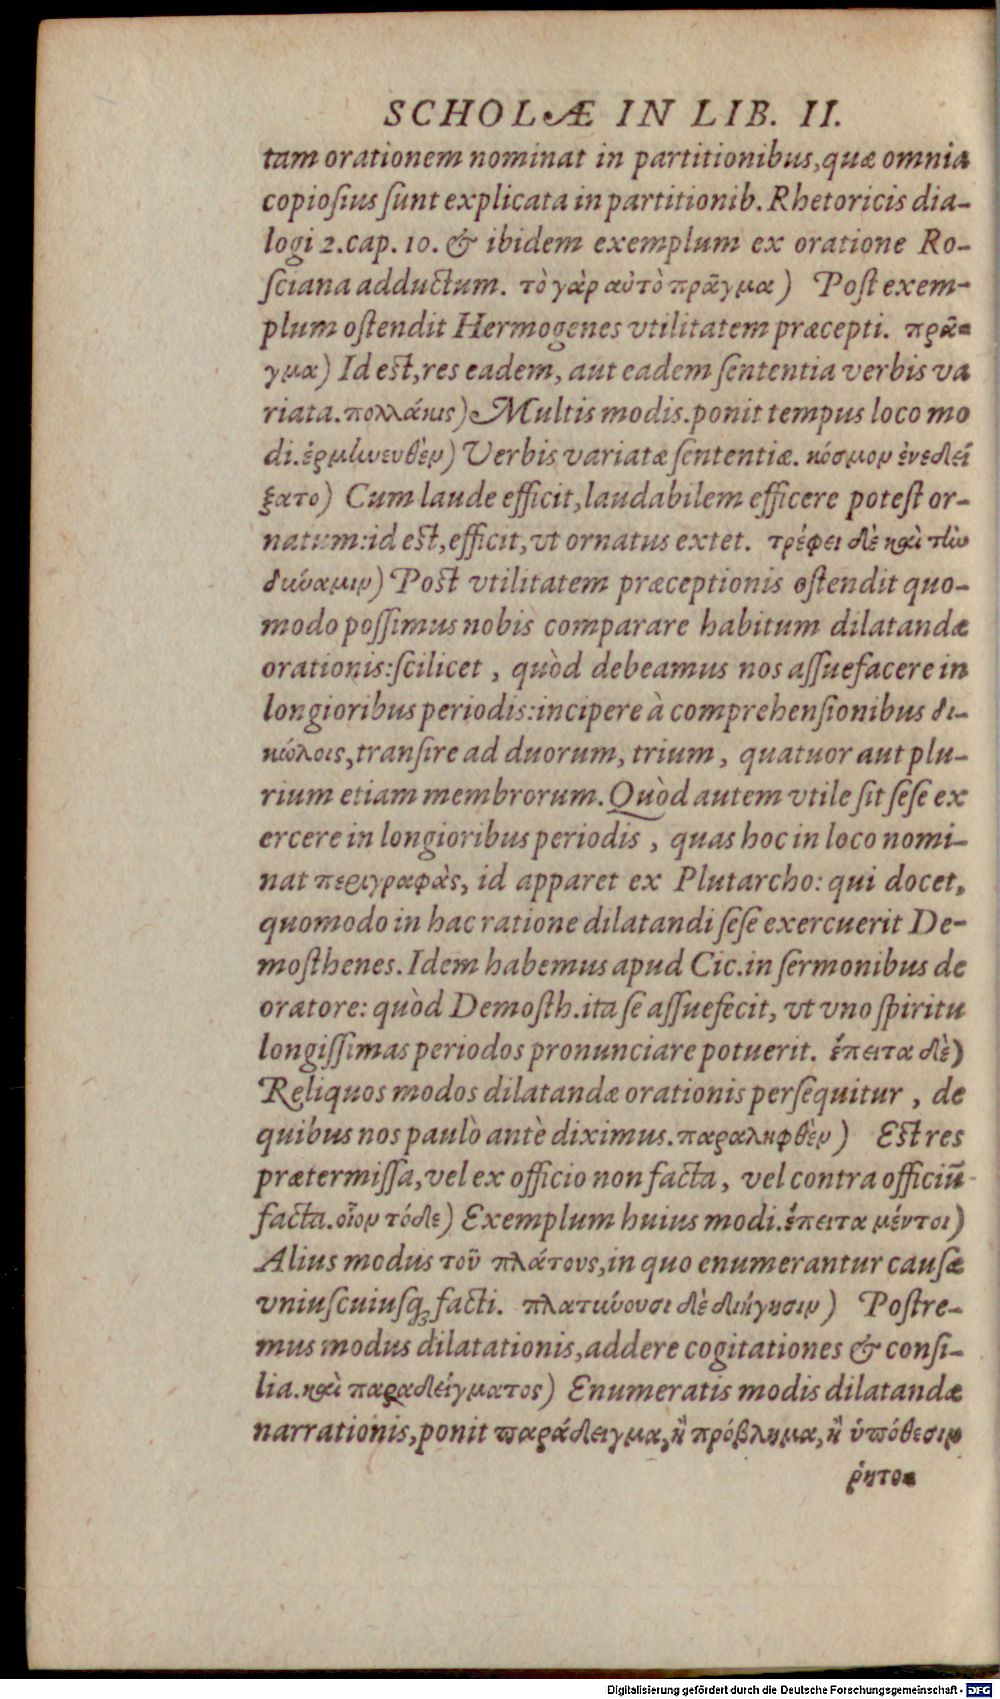 SCHOLÆ IN LIB. II.
tam orationem nominat in partitionibus, quæ omnia
copiosius sunt explicata in partitionib. Rhetoricis dia-
logi 2. cap. 10. & ibidem exemplum ex oratione Ro-
sciana adductum. τὸ γὰρ αὐτὸ πρᾶγμα) Post exem-
plum ostendit Hermogenes vtilitatem præcepti. πρᾶ-
γμα) Id est, res eadem, aut eadem sententia verbis va
riata. πολλάκις) Multis modis. ponit tempus loco mo
di. ἑρμηνευθὲν) Verbis variatæ sententiæ. κόσμον ἐνεδεί
ξατο) Cum laude efficit, laudabilem efficere potest or-
natum: id est, efficit, vt ornatus extet. τρέφει δὲ καὶ τὴν
δύναμιν) Post vtilitatem præceptionis ostendit quo-
modo possimus nobis comparare habitum dilatandæ
orationis: scilicet, quòd debeamus nos assuefacere in
longioribus periodis: incipere à comprehensionibus δι-
κώλοις, transire ad duorum, trium, quatuor aut plu-
rium etiam membrorum. Quòd autem vtile sit sese ex
ercere in longioribus periodis, quas hoc in loco nomi-
nat περιγραφὰς, id apparet ex Plutarcho: qui docet,
quomodo in hac ratione dilatandi sese exercuerit De-
mosthenes. Idem habemus apud Cic. in sermonibus de
oratore: quòd Demosth. ita se assuefecit, vt vno spiritu
longissimas periodos pronunciare potuerit. ἔπειτα δὲ)
Reliquos modos dilatandæ orationis persequitur, de
quibus nos paulò antè diximus. παραληφθὲν) Est res
prætermissa, vel ex officio non facta, vel contra officiū
facta. οἷον τόδε) Exemplum huius modi. ἔπειτα μέντοι)
Alius modus τοῦ πλάτους, in quo enumerantur causæ
vniuscuiusq; facti. πλατύνουσι δὲ διήγησιν) Postre-
mus modus dilatationis, addere cogitationes & consi-
lia. καὶ παραδείγματος) Enumeratis modis dilatandæ
narrationis, ponit παράδειγμα, ἢ πρόβλημα, ἢ ὑπόθεσιν
ῥητο-
Digitalisierung gefördert durch die Deutsche Forschungsgemeinschaft - DFG